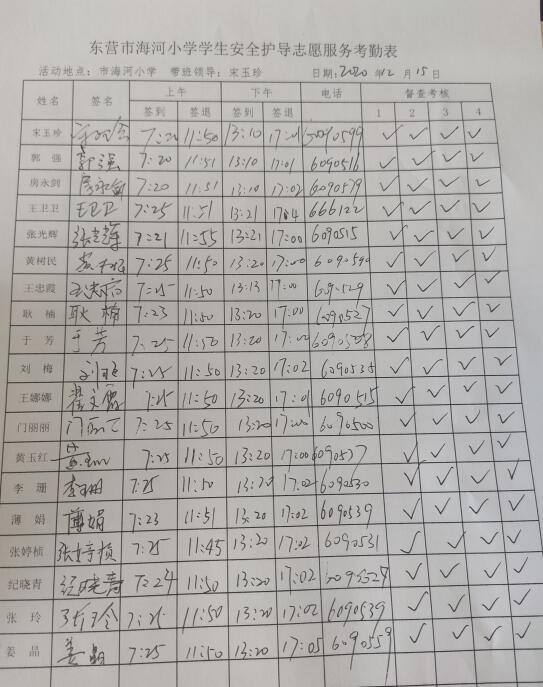 东营市海河小学学生安全护导志愿服务考勤表
活动地点：市海河小学 带班领导：宋玉珍 日期：2020年12月15日
姓名 签名 上午 下午 电话 督查考核
签到 签退 签到 签退 1 2 3 4
宋玉珍 7:20 11:50 13:10 17:01 ✓ ✓ ✓ ✓
郭强 郭强 7:20 11:51 13:10 17:01 6090516 ✓ ✓ ✓ ✓
房永剑 房永剑 7:20 11:51 13:10 17:02 6090579 ✓ ✓ ✓ ✓
王卫卫 王卫卫 7:25 11:51 13:21 17:04 666122 ✓ ✓ ✓ ✓
张光辉 张光辉 7:21 11:55 13:21 17:00 6090515 ✓ ✓ ✓ ✓
黄树民 7:25 11:50 13:20 17:00 6090590 ✓ ✓ ✓ ✓
王忠霞 王忠霞 7:25 11:50 13:13 17:00 ✓ ✓ ✓ ✓
耿楠 耿楠 7:23 11:50 13:20 17:00 6090527 ✓ ✓ ✓ ✓
于芳 于芳 7:25 11:50 13:20 17:02 ✓ ✓ ✓ ✓
刘梅 7:25 11:50 13:20 17:02 6090535 ✓ ✓ ✓ ✓
王娜娜 7:25 11:50 13:20 17:01 6090515 ✓ ✓ ✓ ✓
门丽丽 门丽丽 7:25 11:50 13:20 17:00 6090500 ✓ ✓ ✓ ✓
黄玉红 7:25 11:50 13:20 17:00 6090527 ✓ ✓ ✓ ✓
李珊 李珊 7:25 11:50 13:20 17:02 6090530 ✓ ✓ ✓ ✓
薄娟 薄娟 7:23 11:51 13:20 17:02 6090539 ✓ ✓ ✓ ✓
张婷桢 张婷桢 7:25 11:45 13:20 17:02 6090531 ✓ ✓ ✓ ✓
纪晓青 纪晓青 7:24 11:50 13:20 17:02 6090527 ✓ ✓ ✓ ✓
张玲 张玲 7:25 11:50 13:20 17:02 6090539 ✓ ✓ ✓ ✓
姜晶 姜晶 7:25 11:50 13:20 17:05 6090559 ✓ ✓ ✓ ✓